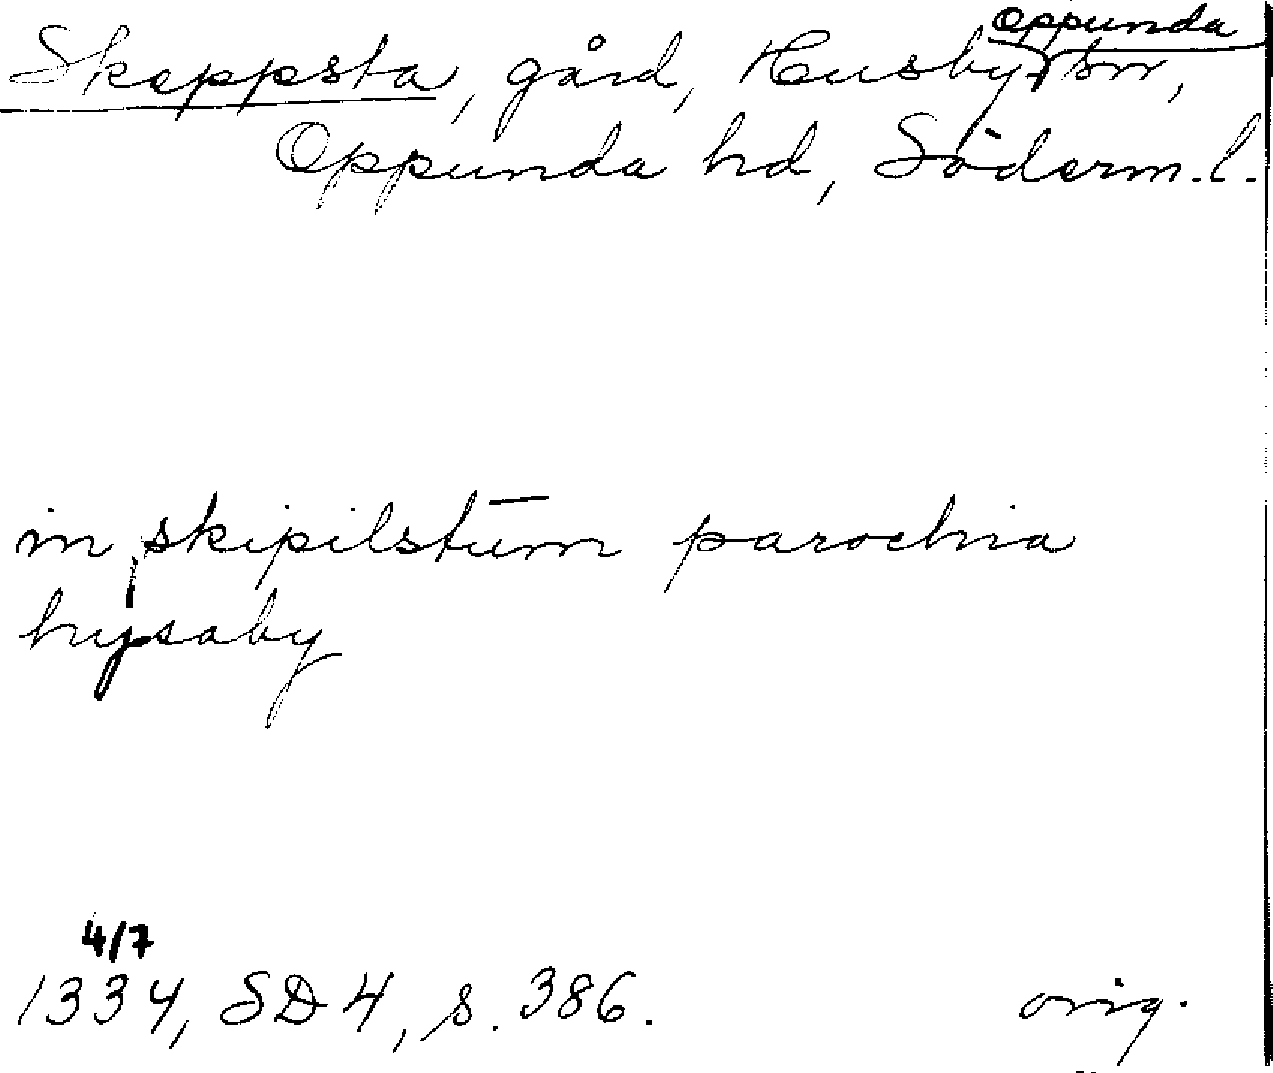 Oppunda
Skeppsta, gård, Husby, sn,
Oppunda hd, Söderm. l.
in skipilstūm parochia
hysaby
4/7
1334, SD 4, s. 386. orig.